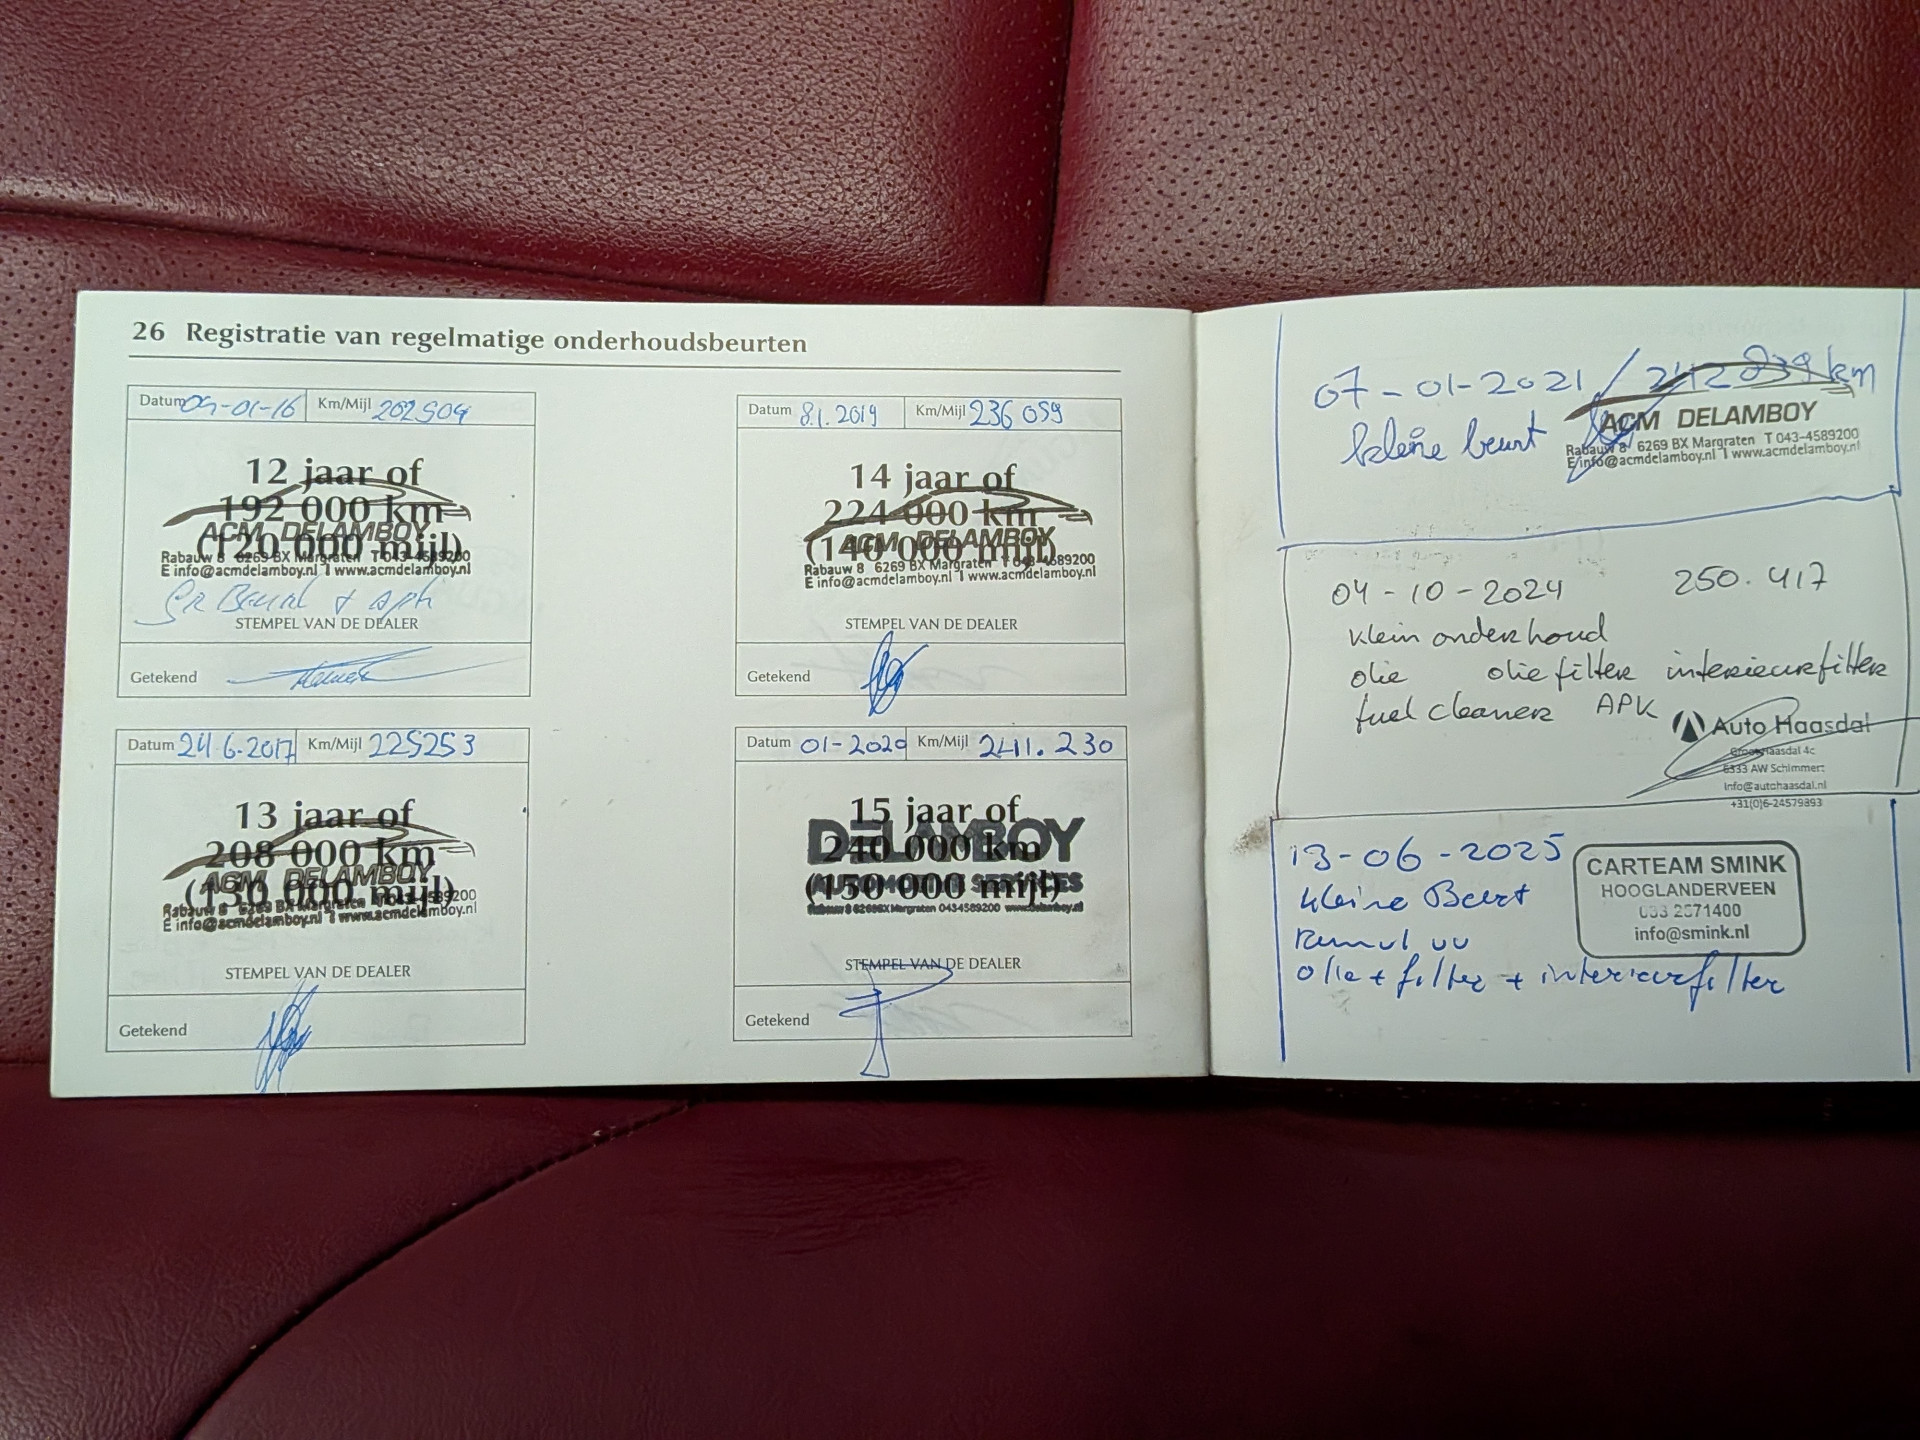 26 Registratie van regelmatige onderhoudsbeurten
Datum 05-01-16 Km/Mijl 202504
12 jaar of
192 000 km
(120 000 mijl)
ACM DELAMBOY
Rabauw 8 6269 BX Margraten T 043-4589200
E info@acmdelamboy.nl I www.acmdelamboy.nl
STEMPEL VAN DE DEALER
Getekend
Datum 24.6.2017 Km/Mijl 225253
13 jaar of
208 000 km
(130 000 mijl)
ACM DELAMBOY
Rabauw 8 6269 BX Margraten T 043-4589200
E info@acmdelamboy.nl I www.acmdelamboy.nl
STEMPEL VAN DE DEALER
Getekend
Datum 8.1.2019 Km/Mijl 236 059
14 jaar of
224 000 km
(140 000 mijl)
ACM DELAMBOY
Rabauw 8 6269 BX Margraten T 043-4589200
E info@acmdelamboy.nl I www.acmdelamboy.nl
STEMPEL VAN DE DEALER
Getekend
Datum 01-2020 Km/Mijl 241.230
15 jaar of
240 000 km
(150 000 mijl)
DELAMBOY
AUTOMOTIVE SERVICES
Rabauw 8 6269BX Margraten 0434589200 www.delamboy.nl
STEMPEL VAN DE DEALER
Getekend
07-01-2021 / 242 839 km
kleine beurt
ACM DELAMBOY
Rabauw 8 6269 BX Margraten T 043-4589200
E info@acmdelamboy.nl I www.acmdelamboy.nl
04-10-2024 250.417
klein onderhoud
olie olie filter interieurfilter
fuel cleaner APK
Auto Haasdal
Groot Haasdal 4c
6333 AW Schimmert
info@autohaasdal.nl
+31(0)6-24579893
13-06-2025
kleine Beurt
olie + filter + interieurfilter
CARTEAM SMINK
HOOGLANDERVEEN
033 2571400
info@smink.nl